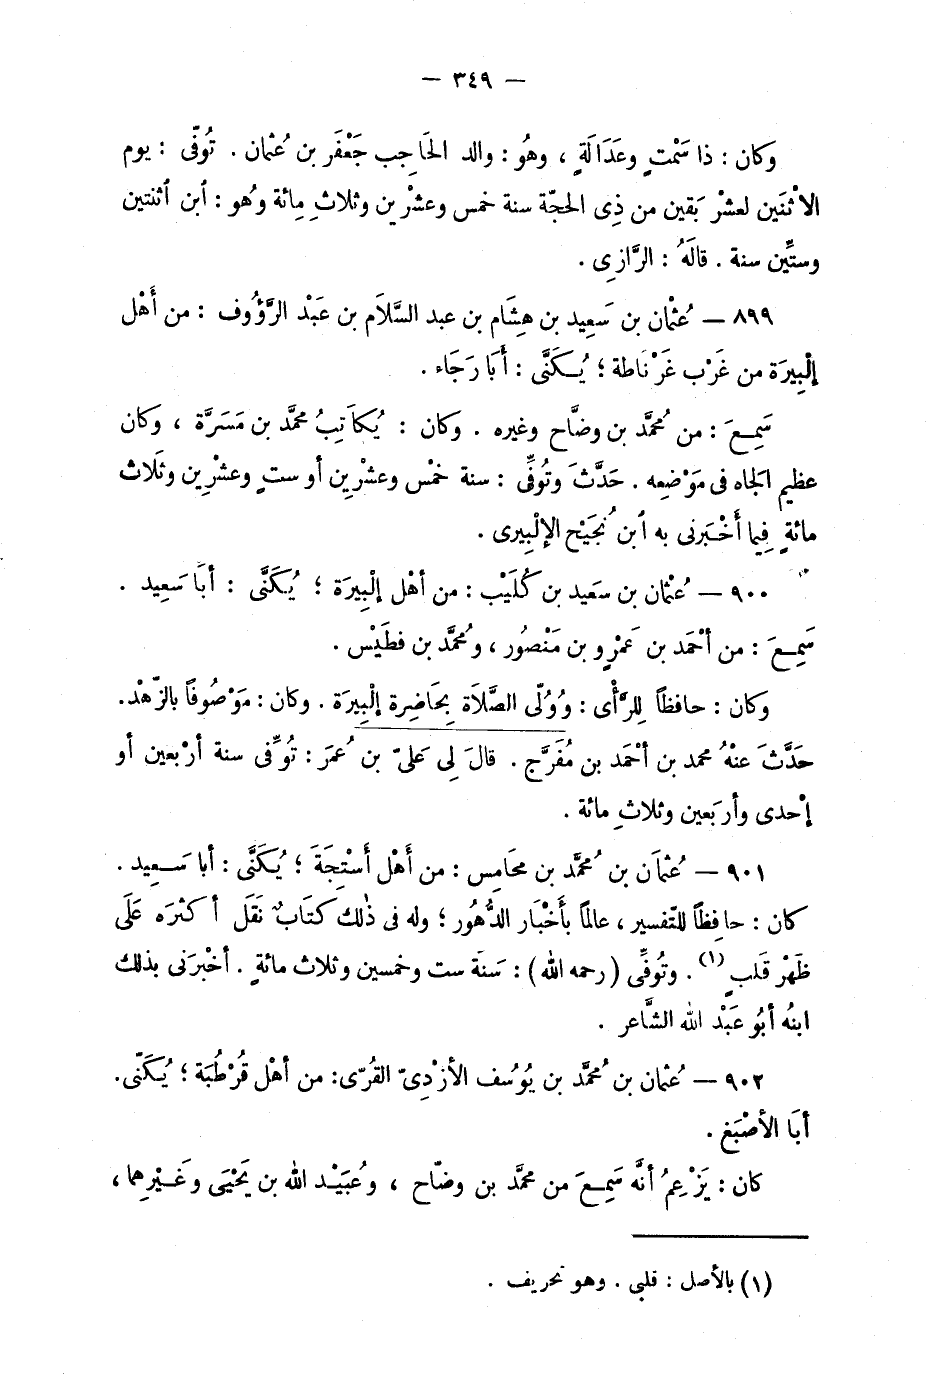 — ٣٤٩ —
وكان : ذا سَمْتٍ وعَدَالَةٍ ، وهُو : والد الحَاجِب جَعْفَر بن عُثمان . تُوفّى : يوم
الاثْنَين لعشْر بَقين من ذِى الحجّة سنة خمس وعشْرين وثلاثِ مِائة وهُو : اُبن اُثنتين
وستِّين سنة . قالَهُ : الرَّازِى .
٨٩٩ — عُثْمان بن سَعِيد بن هِشَام بن عبد السَّلاَم بن عَبْد الرَّؤُوف : من أَهْل
إلْبِيرَة من غَرْب غَرْنَاطة ؛ يُكَنَّى : أَبَا رَجَاء .
سَمِعَ : من مُحمَّد بن وضَّاح وغيره . وكان : يُكاَتِبُ محمَّد بن مَسَرَّة ، وكان
عظيم الجَاه فى مَوْضِعِه . حَدَّثَ وتُوفِّى : سنة خمْس وعشْرِين أو ستٍ وعشْرِين وثَلاث
مائةٍ فِيما أَخْبَرنى به اُبن نُجَيْح الإلْبيرى .
٩٠٠ — عُثْمان بن سَعيد بن كُلَيْب : من أهْل إلْبِيرَة ؛ يُكَنَّى : أَبَا سَعِيد .
سَمِعَ : من أحْمَد بن عَمرْوٍ بن مَنْصُور ، ومُحمَّد بن فطَيْس .
وكان : حافظاً لِلرَّأْى : وَوُلّى الصَّلاَة بِحَاضِرة إلْبِيرَة . وكان : مَوْصُوفاً بالزّهْد.
حَدَّثَ عنْهُ محمد بن أحْمَد بن مُفَرَّج . قالَ لِى عَلىّ بن عُمَرَ : تُوفِّى سنة أرْبعين أو
إحْدى وأربَعين وثلاثِ مائة .
٩٠١ — عُثمَان بن مُحمَّد بن محَامِس : من أَهْل أَسْتِجَةَ ؛ يُكَنَّى : أبا سَعِيد .
كان : حافِظاً للتّفسير ، عالماً بأَخْبَار الدُّهُور ؛ وله فى ذٰلك كتَابٌ نقَل أكثرَه عَلَى
ظَهْر قَلبٍ (١) . وتُوفِّى (رحمه الله) : سَنة ست وخمسين وثلاث مائةٍ . أخْبرَنى بذلك
ابنُه أبُو عَبْد الله الشَّاعر .
٩٠٢ — عُثمان بن مُحمَّد بن يُوسُف الأزْدِىّ القُرّى: من أهْل قُرْطُبَة ؛ يُكَنّى.
أبَا الأصْبَغ .
كان : يَزْعِمُ أنَّه سَمِعَ من محمَّد بن وضّاح ، وعُبَيْد الله بن يَحْيَى وغَيْرِهما ،
(١) بالأصل : قلبى . وهو تحريف .